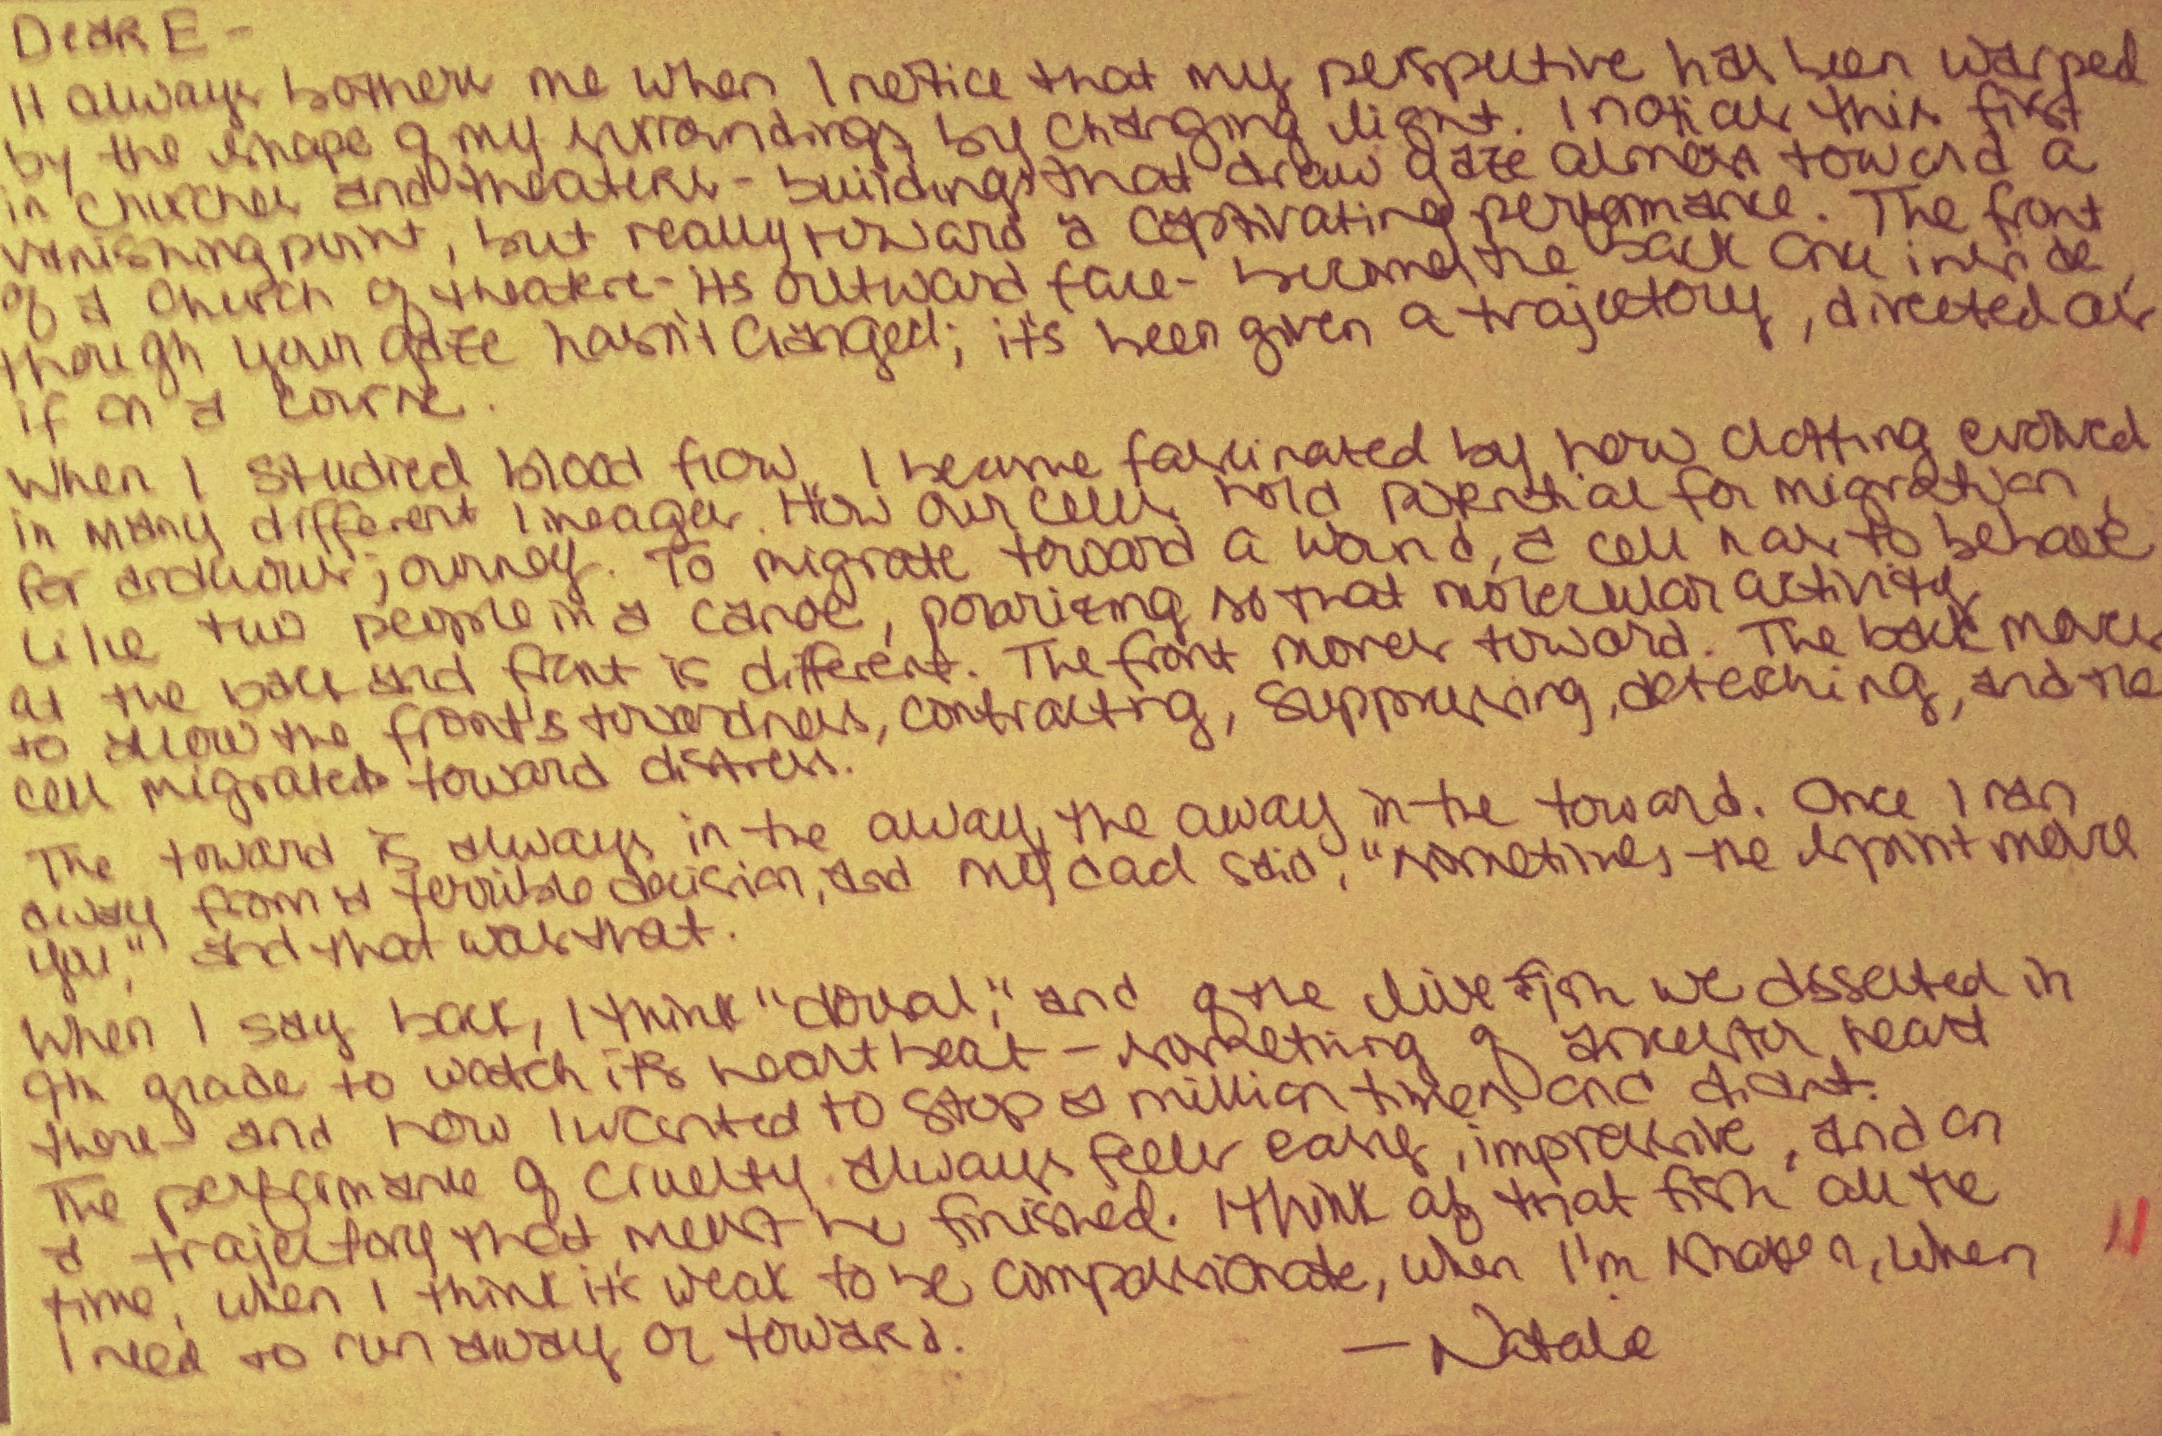 Dear E -
It always bothers me when I notice that my perspective has been warped
by the shape of my surroundings, by changing light. I notice this first
in churches and theaters - buildings that draw gaze almost toward a
vanishing point, but really toward a captivating performance. The front
of a church or theatre - its outward face - becomes the back once inside,
though your gaze hasn't changed; it's been given a trajectory, directed as
if on a course.
When I studied blood flow, I became fascinated by how clotting evolved
in many different lineages. How our cells hold potential for migration,
for arduous journey. To migrate toward a wound, a cell has to behave
like two people in a canoe, polarizing so that molecular activity
at the back and front is different. The front moves toward. The back moves
to allow the front's towardness, contracting, suppressing, detaching, and the
cell migrates toward distress.
The toward is always in the away, the away in the toward. Once I ran
away from a terrible decision, and my dad said, "sometimes the spirit move
you," and that was that.
When I say back, I think "dorsal," and of the live fish we dissected in
9th grade to watch its heart beat - something of ancestor heart
there - and how I wanted to stop a million times and didn't.
The performance of cruelty always feels easy, impressive, and on
a trajectory that must be finished. I think of that fish all the
time, when I think it's weak to be compassionate, when I'm shaken, when
I need to run away or toward.
— Natalie